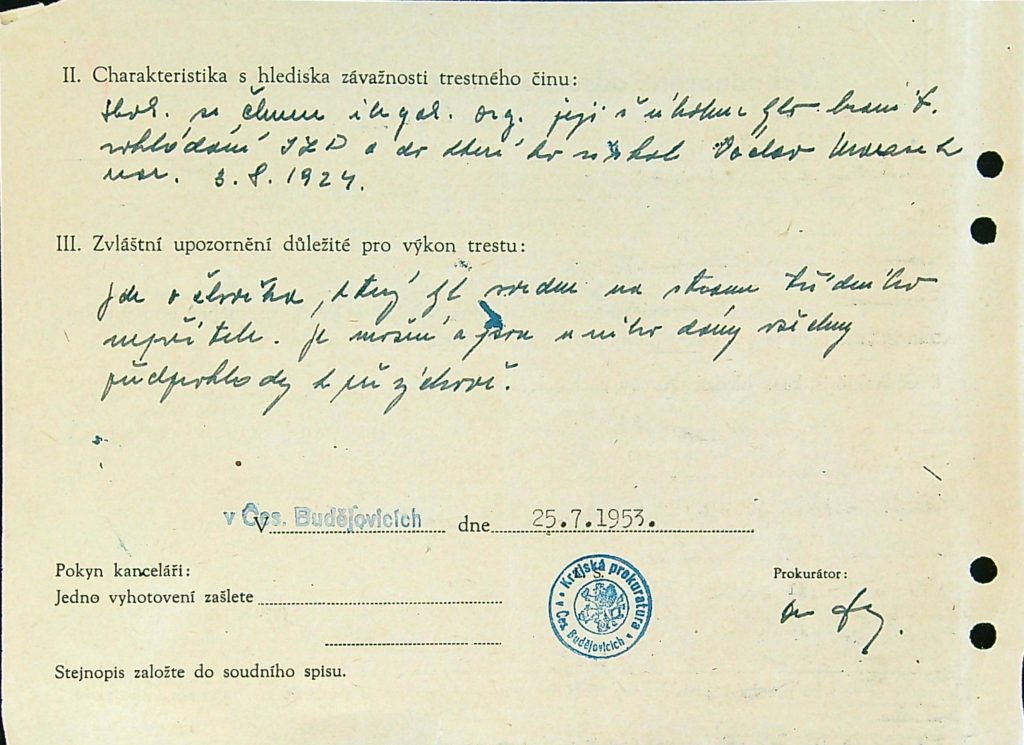 II. Charakteristika s hlediska závažnosti trestného činu:
členem ilegál. org. její ž úkolem bylo
zakládání JZD a do které ho získal Václav
nar. 3.8.1924.
III. Zvláštní upozornění důležité pro výkon trestu:
Jde o člověka, který byl sveden na stranu třídního
nepřítele. Je možné a jsou u něho dány všechny
předpoklady k převýchově.
v Čes. Budějovicích
V dne 25.7.1953.
Pokyn kanceláři:
Jedno vyhotovení zašlete
Krajská prokuratura
S.
Čes. Budějovicích
Prokurátor:
Stejnopis založte do soudního spisu.